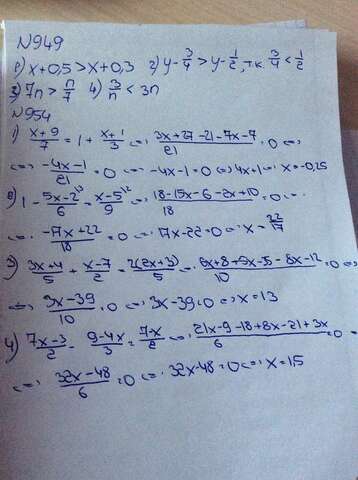 N949
1) x+0,5 > x+0,3 2) y-3/4 > y-1/2, т.к. 3/4 < 1/2
3) 7n > n/7 4) 3/n < 3n
N954
1) (x+9)/7 = 1 + (x+1)/3 <=> (3x+27-21-7x-7)/21 = 0 <=>
<=> (-4x-1)/21 = 0 <=> -4x-1=0 <=> 4x+1 <=> x=-0,25
2) 1 - (5x-2)/6 = (x-5)/9 <=> (18-15x-6-2x+10)/18 = 0 <=>
<=> (-17x+22)/18 = 0 <=> 17x-22=0 <=> x = 22/17
3) (3x+4)/5 + (x-7)/2 = 2(2x+3)/5 <=> (6x+8+5x-35-8x-12)/10 = 0 <=>
<=> (3x-39)/10 = 0 <=> 3x-39=0 <=> x=13
4) (7x-3)/2 - (9-4x)/3 = (7-x)/2 <=> (21x-9-18+8x-21+3x)/6 = 0 <=>
<=> (32x-48)/6 = 0 <=> 32x-48=0 <=> x=1,5